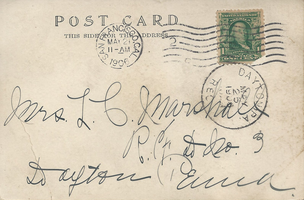 POST CARD.
THIS SIDE FOR THE ADDRESS
SAN FRANCISCO, CAL.
MAY
11-AM
1906
DAYTON, PA.
REC'D
Mrs L. C. Marshall
R. F. D. No. 3
Dayton Penna